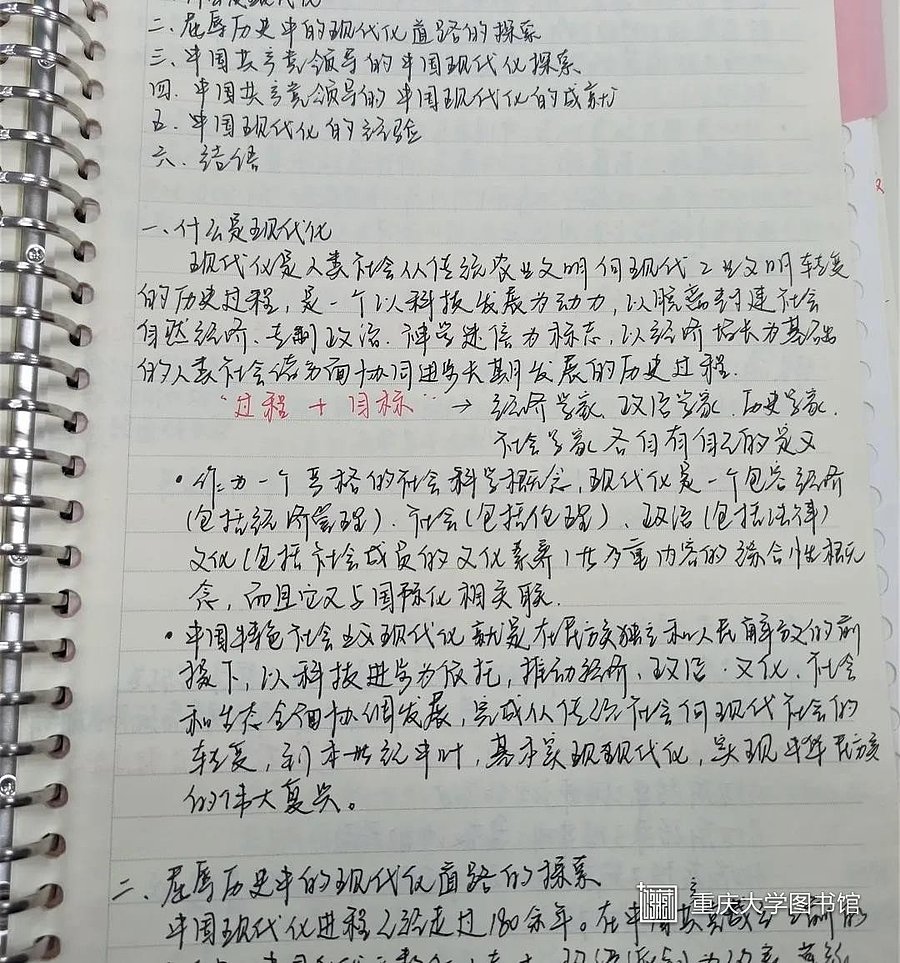 二、屈辱历史中的现代化道路的探索
三、中国共产党领导的中国现代化探索
四、中国共产党领导的中国现代化的成就
五、中国现代化的经验
六、结语
一、什么是现代化
现代化是人类社会从传统农业文明向现代工业文明转变
的历史过程，是一个以科技发展为动力，以脱离封建社会
自然经济、专制政治、神学迷信为标志，以经济增长为基础
的人类社会诸方面协同进步长期发展的历史过程.
"过程 + 目标" → 经济学家、政治学家、历史学家、
社会学家各自有自己的定义
• 作为一个严格的社会科学概念，现代化是一个包容经济
(包括经济管理)、社会(包括伦理)、政治(包括法律)
文化(包括社会成员的文化素养)共多重内容的综合性概
念，而且它又与国际化相关联.
• 中国特色社会主义现代化就是在民族独立和人民解放的前
提下，以科技进步为依托，推动经济、政治、文化、社会
和生态全面协调发展，完成从传统社会向现代社会的
转变，到本世纪中叶，基本实现现代化，实现中华民族
的伟大复兴。
二、屈辱历史中的现代化道路的探索
中国现代化进程已经走过180余年。在中国共产党
重庆大学图书馆